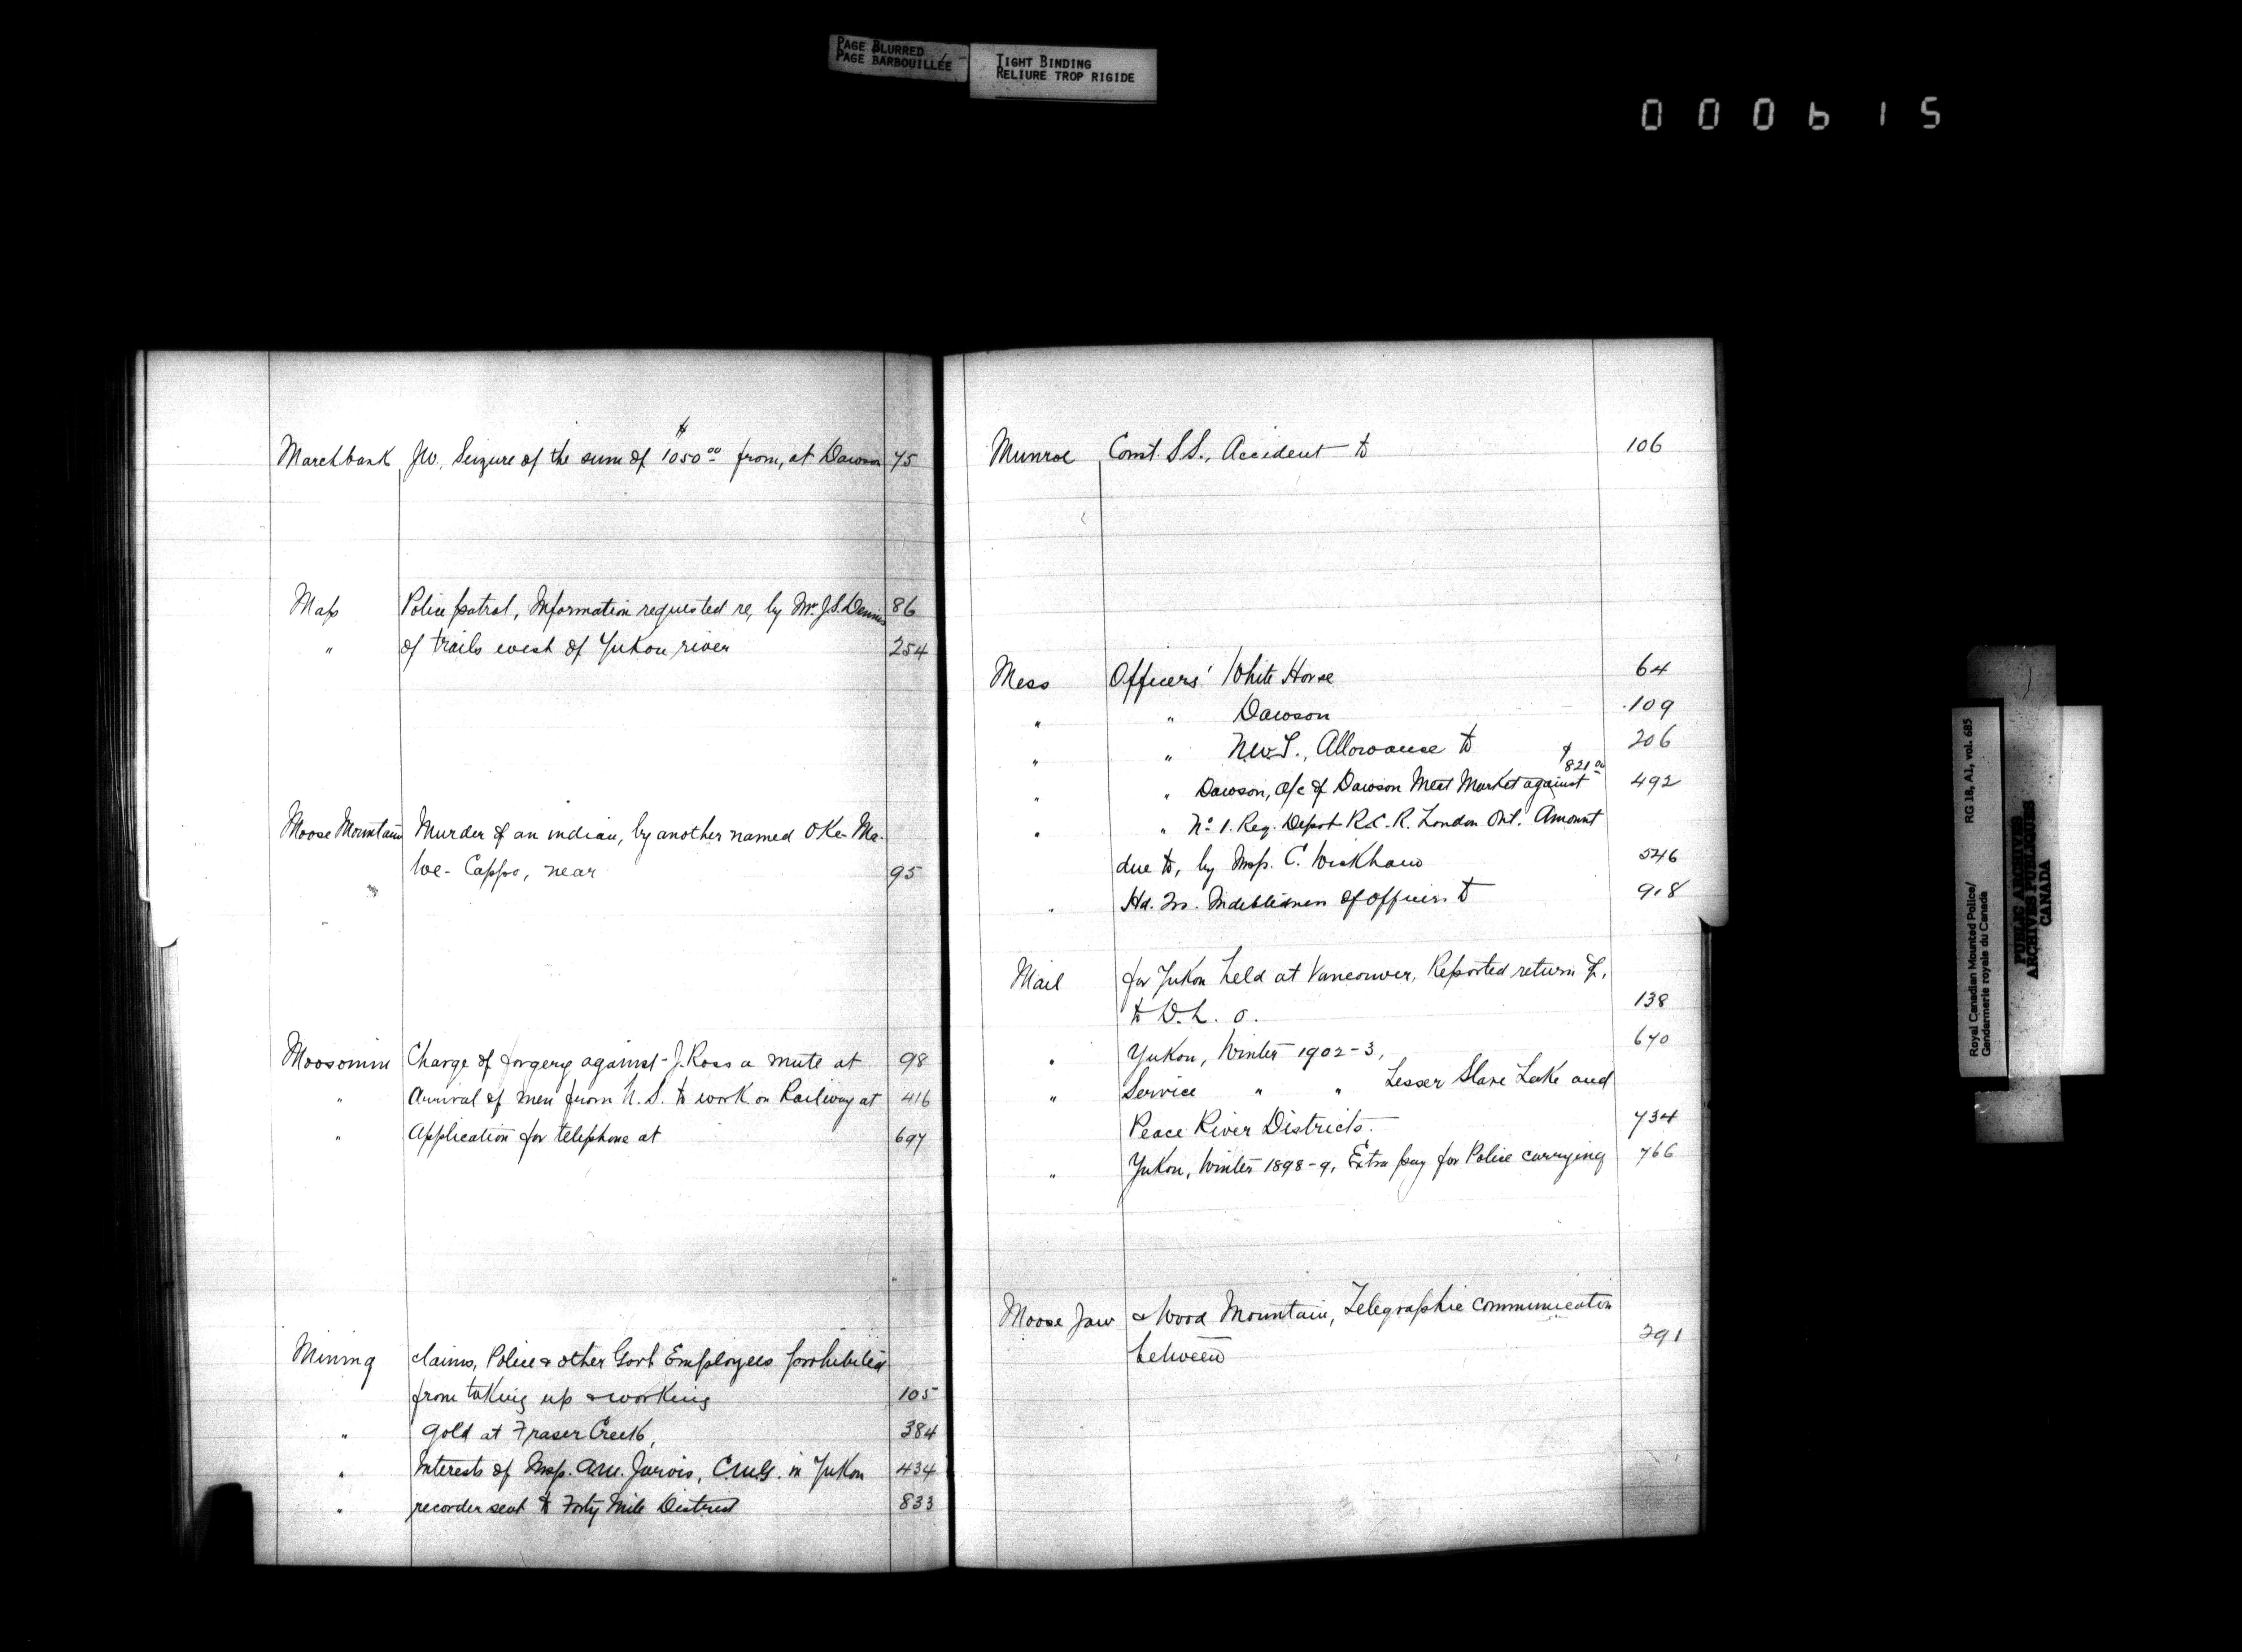 PAGE BLURRED
PAGE BARBOUILLÉE
TIGHT BINDING
RELIURE TROP RIGIDE
000615
Marchbank J.W. Seizure of the sum of $1050.00 from, at Dawson 75
Map Police patrol, Information requested re, by Mr. J.S. Dennis 86
" of trails west of Yukon river 254
Moose Mountain Murder of an indian, by another named O Ke- Ma-
We- Cappo, near 95
Moosomin Charge of forgery against J. Ross a mute at 98
" Arrival of men from N.S. to work on Railway at 416
" Application for telephone at 697
Mining claims, Police & other Govt Employees prohibited
from taking up & working 105
" gold at Fraser Creek, 384
" Interests of Insp. A.M. Jarvis, C.M.G. in Yukon 434
" recorder sent to Forty Mile District 833
Munroe Const. S.S., Accident to 106
Mess Officers' White Horse 64
" " Dawson 109
" " N.W.T., Allowance to 206
" " Dawson, a/c of Dawson Meat Market against $821.00 492
" " No. 1. Reg. Depot R.C.R. London Ont. Amount
due to, by Insp. C. Wickham 546
" Hd. Qrs. Indebtedness of Officers to 918
Mail for Yukon held at Vancouver, Reported return of,
to D.L.O. 138
" Yukon, Winter 1902-3, 670
" Service " " Lesser Slave Lake and
Peace River Districts. 734
" Yukon, Winter 1898-9, Extra pay for Police carrying 766
Moose Jaw & Wood Mountain, Telegraphic communication
between 291
Royal Canadian Mounted Police/
Gendarmerie royale du Canada
RG 18, A1, vol. 685
PUBLIC ARCHIVES
ARCHIVES PUBLIQUES
CANADA